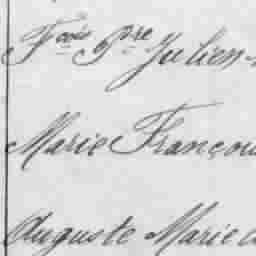 Fois Pre Julien
Marie Françoi
Auguste Marie